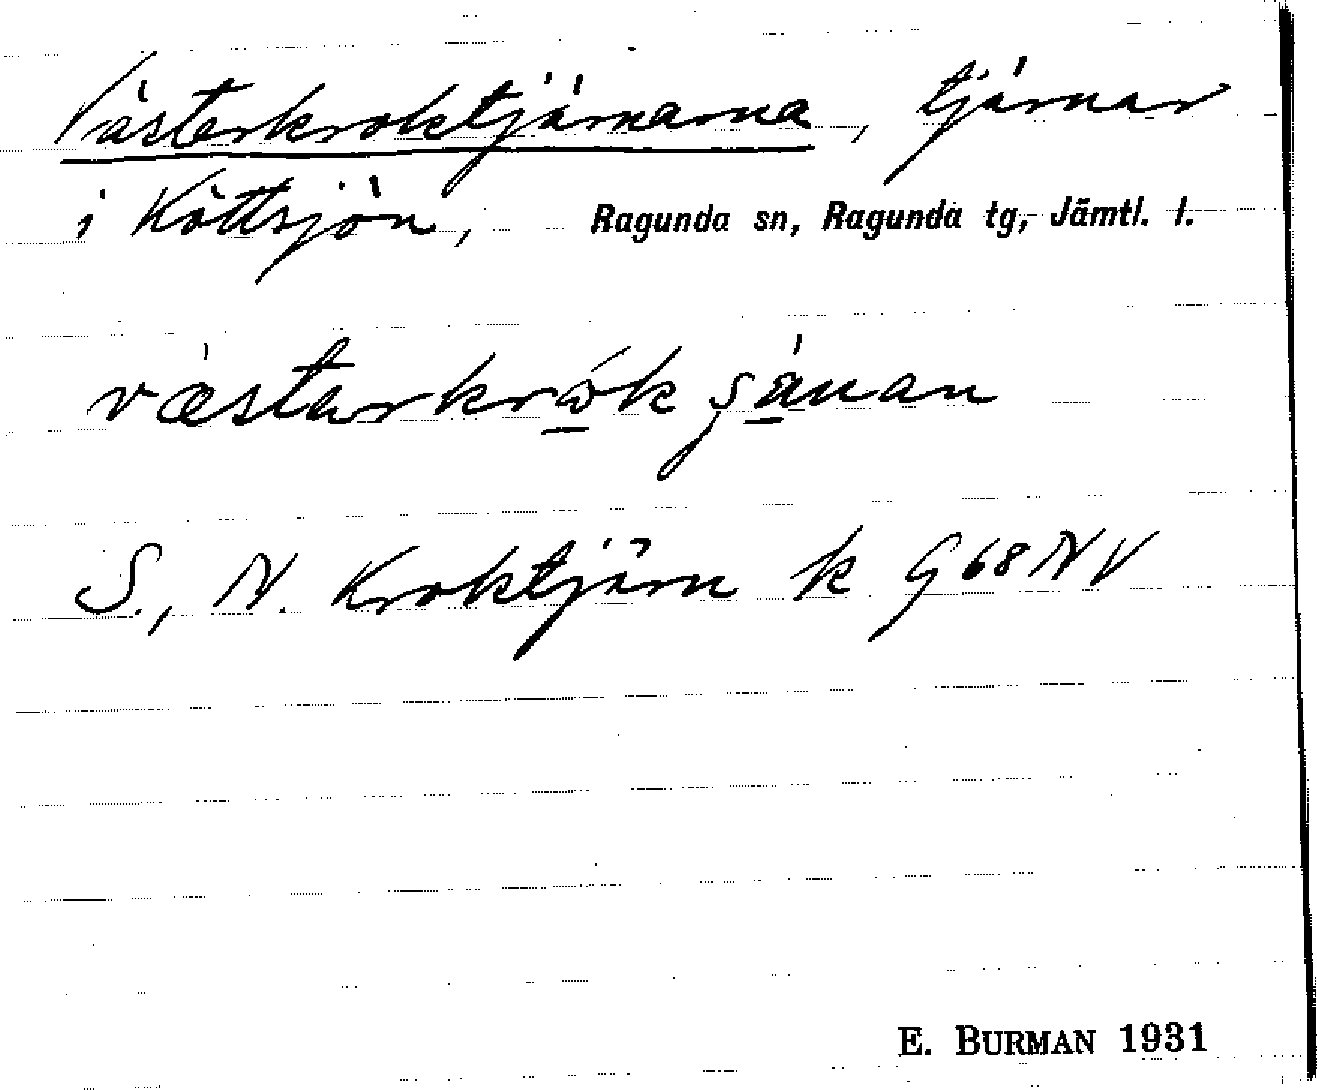 Västerkroktjärnarna, tjärnar
i Köttsjön, Ragunda sn, Ragunda tg, Jämtl. l.
S., N. Kroktjärn k G 68 NV
E. BURMAN 1931